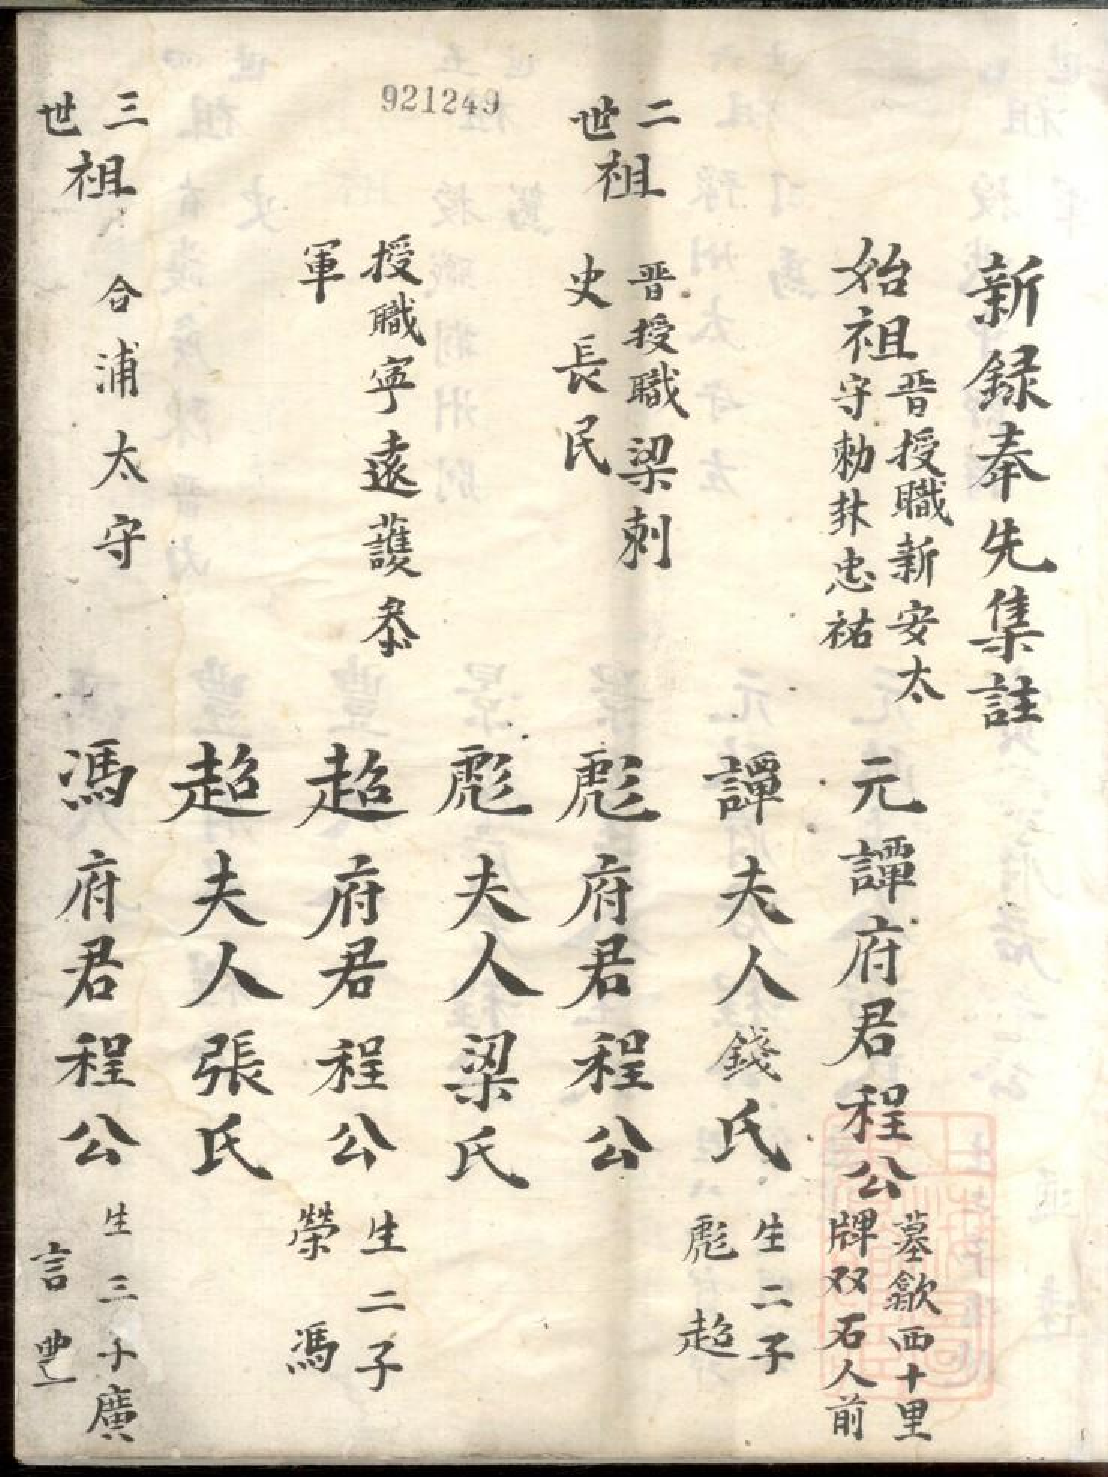 921249
新録奉先集註
始祖
晋授職新安太
守勅封忠祐
元譚府君程公
墓歙西十里
牌双石人前
譚夫人錢氏
生二子
彪 超
二世祖
晋授職梁刺
史長民
彪府君程公
彪夫人梁氏
授職寧遠護叅
軍
超府君程公
生二子
榮 馮
超夫人張氏
三世祖
合浦太守
馮府君程公
生三子廣
言 豐